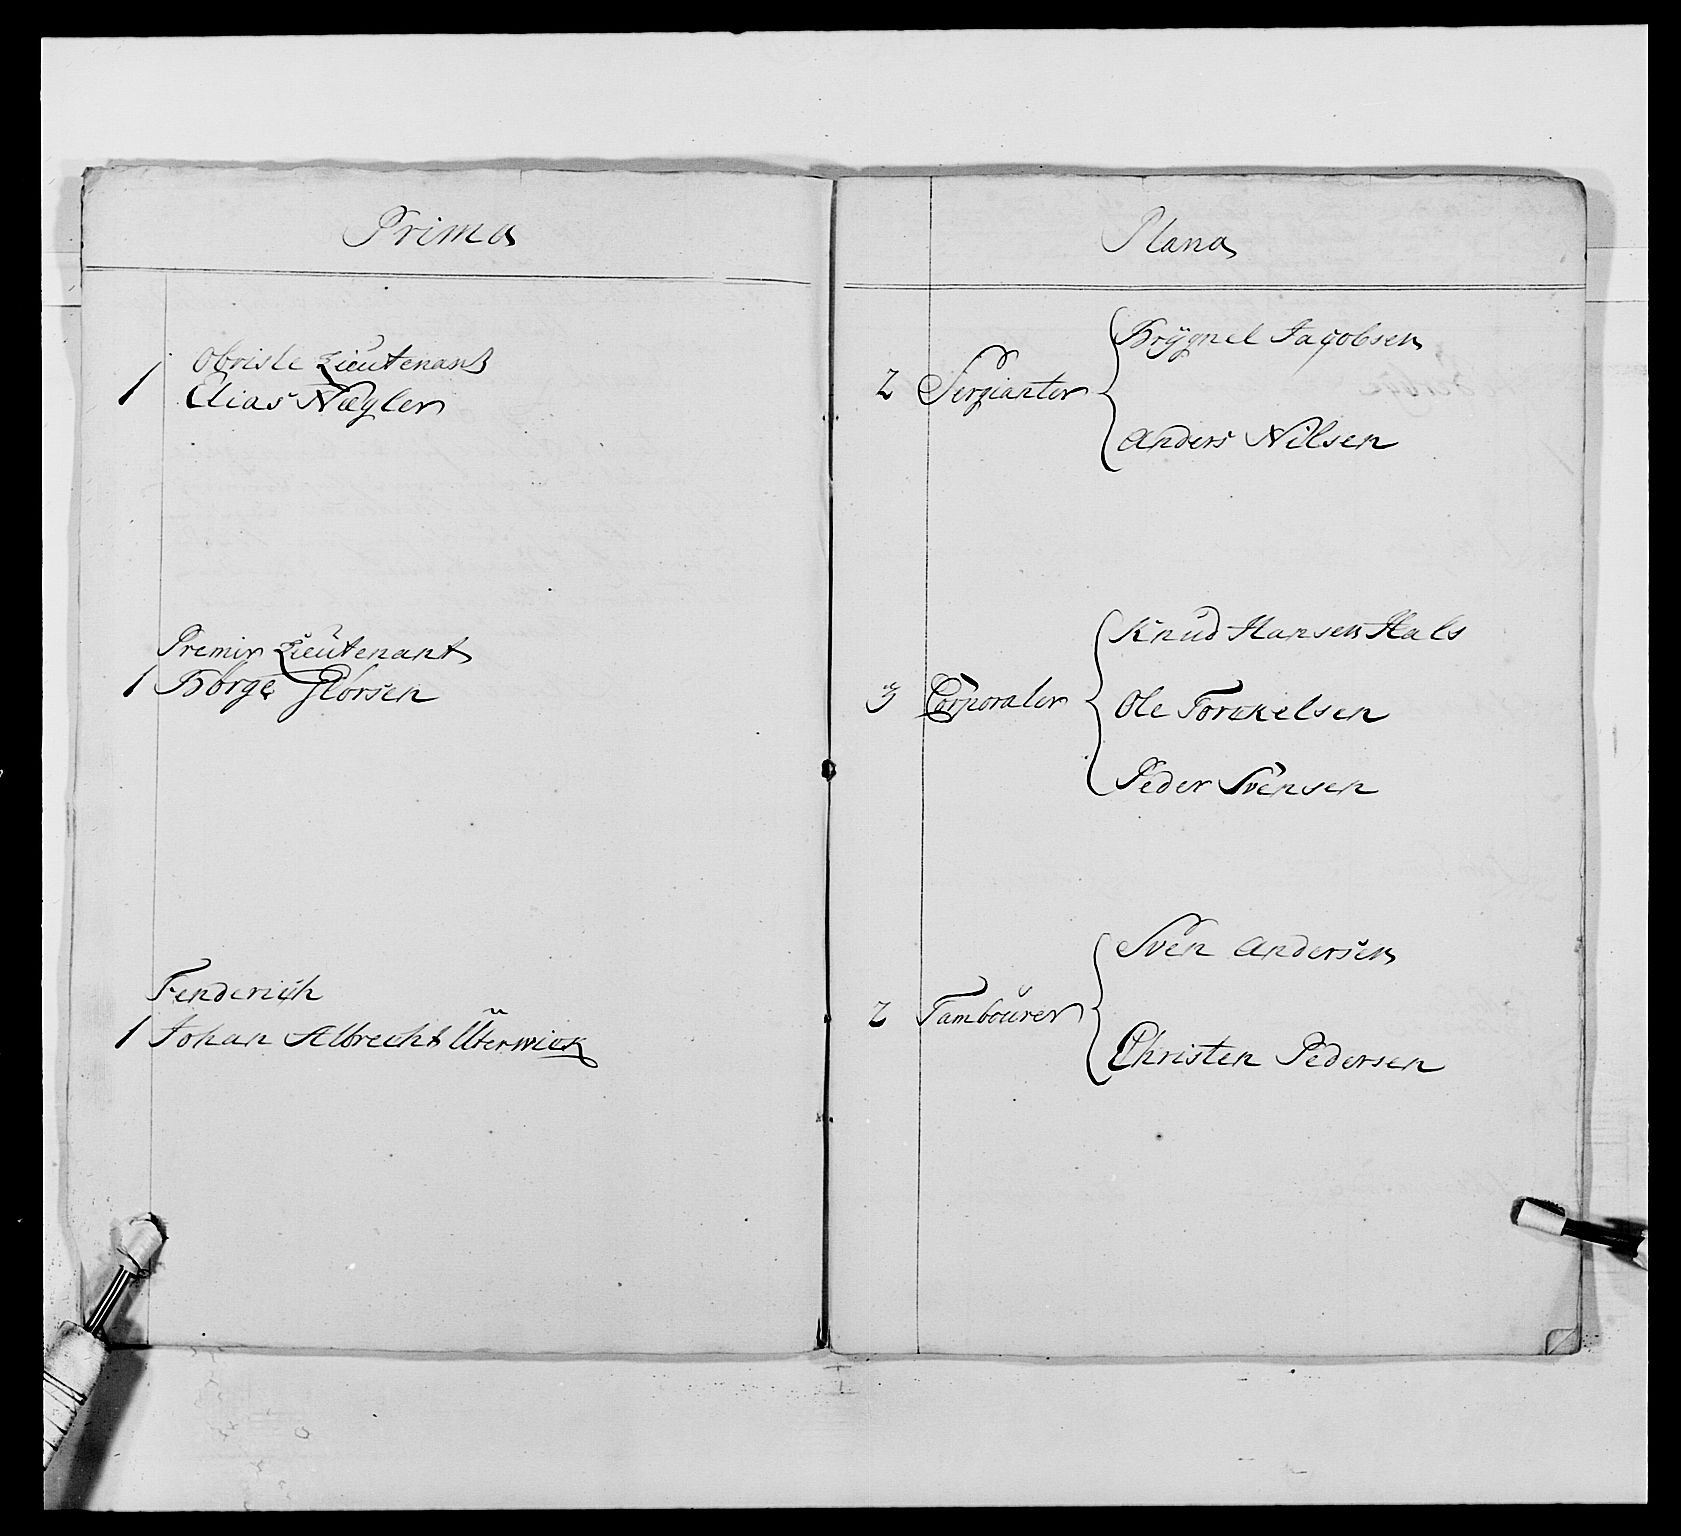 Prima
Obriste Lieutenant
1 Elias Nægler
Premir Lieutenant
1 Börge Glörsen
Fenderich
1 Johan Albrecht Uterwick
Plana
Brÿgnel Jacobsen
2 Sergianter
Anders Nilsen
Knud Hansen Hals
3 Corporaler
Ole Torckelsen
Peder Svensen
Sven Andersen
2 Tambourer
Christen Pedersen